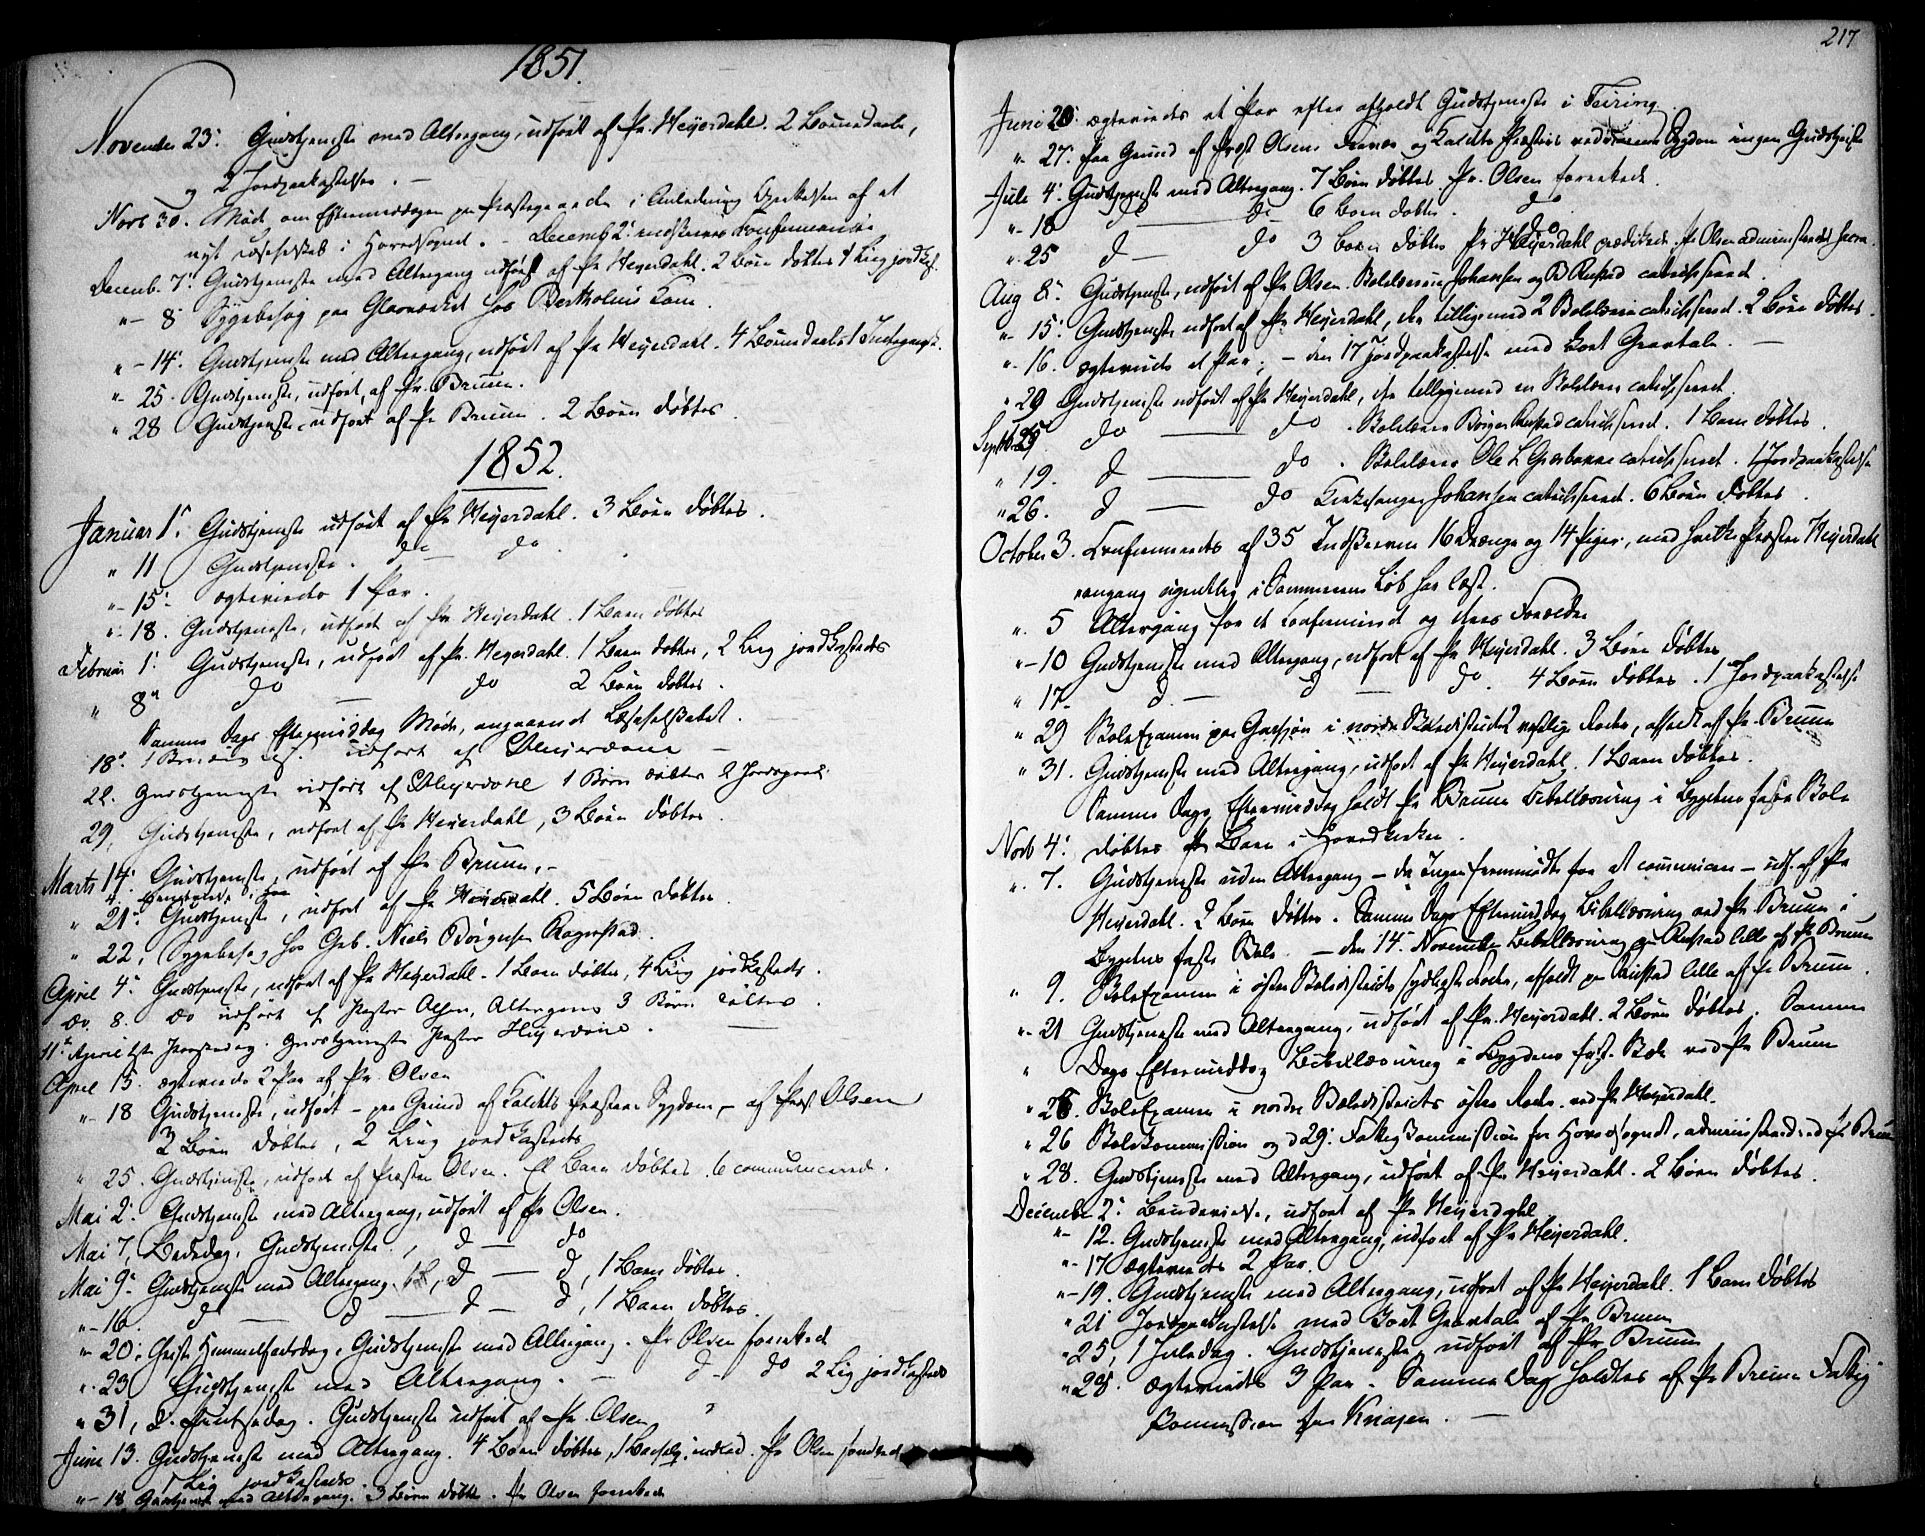 1851.
November 23. Gudstjeneste med Altergang, udført af Pr. Heyerdahl. 2 Børn døbte,
og 2 Jordpaakastelser. —
Novb 30. Møde om Eftermiddagen paa Præstegaarden i Anledning Oprettelsen af et
nyt Læseselskab i Hovedsognet. — Decemb. 2
Decemb. 7. Gudstjeneste med Altergang udført af Pr Heyerdahl. 2 Børn døbtes 1 Liig jordk.
"- 8 Sygebesøg paa Glasværket hos Bertholius
"- 14. Gudstjeneste med Altergang, udført af Pr Heyerdahl. 4 Børn
"- 25. Gudstjeneste, udført af Pr. Bruun.
" 28 Gudstjeneste udført af Pr Bruun. 2 Børn døbtes.
1852.
Januar 1. Gudstjeneste udført af Pr Heyerdahl. 3 Børn døbtes.
" 11 Gudstjeneste. do — do.
"- 15. ægteviedes 1 Par.
"- 18. Gudstjeneste, udført af Pr Heyerdahl. 1 Barn døbtes
Februar 1. Gudstjeneste, udført af Pr. Heyerdahl. 1 Barn døbtes, 2 Liig jordkastedes
" 8 do — do 2 Børn døbtes.
Samme Dags Eftermiddag Møde, angaaende Læseselskabet.
18. 1 udført af CHeyerdahl —
22. Gudstjeneste udført af CHeyerdahl 1 Børn døbtes 2
29, Gudstjeneste, udført af Pr Heyerdahl, 3 Børn døbtes.
Marts 14. Gudstjeneste, udført af Pr Bruun. –
" 21. Gudstjeneste, udført af Pr Heyerdahl. 5 Børn døbtes
" 22, Sygebesøg hos Gb. Niels Børgersen Ragnstad.
April 4. Gudstjeneste, udført af Pr Heyerdahl. 1 Barn døbtes, 4 Liig jordkastedes.
do. 8. do udført af Pastor Olsen, Altergang 3 Børn døbtes.
11. April 1ste Paaskedag. Gudstjeneste Pastor Heyerdahl.
April 13. ægteviedes 2 Par af Pr. Olsen
"- 18 Gudstjeneste, udført – paa Grund af Kaldets Præsters Sygdom, – af Præst Olsen
3 Børn døbtes, 2 Liig jordkastedes
" 25. Gudstjeneste, udført af Præsten Olsen. Et Barn døbtes. 6 communicerede.
Mai 2. Gudstjeneste med Altergang, udført af Pr Olsen.
Mai 7, Bededag. Gudstjeneste, d — do
Mai 9. Gudstjeneste med Altergang, d — d, 1 Barn døbtes.
"- 16 d — d — d — d, 1 Barn døbtes.
"- 20. Christi Himmelfartsdag, Gudstjeneste med Altergang. Pr Olsen forrettede
"- 23 Gudstjeneste med Altergang. — d — do 2 Liig jordkastedes
" 31, 2. Pintsedag. Gudstjeneste udført af Pr. Olsen
Juni 13. Gudstjeneste med Altergang. 4 Børn døbtes, 1 Barselq. indled. Pr Olsen forrettede
1 Liig jordkastedes
"- 18 Gudstjeneste med Altergang. 3 Børn døbtes. Pr Olsen forrettede
217
Juni 20 ægteviedes et Par efter afholdt Gudstjeneste i Feiring.
"- 27. paa Grund af Præst Olsens og Kaldets Præsters vedvarende Sygdom ingen Gudstjeneste
Juli 4. Gudstjeneste med Altergang. 7 Børn døbtes. Pr. Olsen forrettede.
"- 18 d — do 6 Børn døbtes. do
" 25 d — do 3 Børn døbtes Pr Heyerdahl prædikede. Pr Olsen administrerede Sacra.
Aug 8. Gudstjeneste, udført af Pr Olsen. Skolelærerne Johansen og B Rustad catechiserede.
"- 15. Gudstjeneste udført af Pr Heyerdahl, der tilligemed 2 Skolelærere catechiserede. 2 Børn døbtes.
"- 16. ægteviedes et Par. – den 17 Jordpaakastelse med kort Gravtale. —
" 29 Gudstjeneste udført af Pr Heyerdahl, der tilligemed en Skolelærer catechiserede.
Septbr 5 do — do. Skolelærer Børger Rustad catechiserede. 1 Barn døbtes.
" 19. d — do. Skolelærer Ole L Græsbakke catechiserede. 1 Jordpaakastelse
" 26. d — do Kirkesanger Johansen catechiserede. 6 Børn døbtes.
October 3. Confirmeredes af 35 Indskrevne 16 Drenge og 14 Piger, med hvilke Præsten Heyerdahl
eengang ugentlig i Sommerens Løb har læst.
" 5 Altergang for de Confirmerede og deres Forældre
"- 10 Gudstjeneste med Altergang, udført af Pr Heyerdahl. 3 Børn døbtes
" 17. d. — d — do. 4 Børn døbtes. 1 Jordpaakastelse
" 29 Skole Examen paa Garsjøen i nordre Skoledistricts vestlige Rode, afholdt af Pr. Bruun
" 31. Gudstjeneste med Altergang, udført af Pr Heyerdahl. 1 Barn døbtes.
Samme Dags Eftermiddag holdt Pr Bruun Bibellæsning i Bygdens faste Skole
Novb 4. døbtes et Barn i Hovedkirken.
" 7. Gudstjeneste uden Altergang – da Ingen fremmødte for at communicere – udf. af Pr
Heyerdahl. 2 Børn døbtes. Samme Dags Eftermiddag Bibellæsning ved Pr Bruun i
Bygdens faste Skole. – den 14. November Bibellæsning paa Rustad lille af Pr Bruun
" 9. Skole Examen i østre Skoledistricts sydligste Rode, afholdt paa Ruistad lille af Pr Bruun.
"- 21 Gudstjeneste med Altergang, udført af Pr. Heyerdahl. 2 Børn døbtes. Samme
" Dags Eftermiddag Bibellæsning i Bygdens faste Skole ved Pr Bruun
" 26. Skole Examen i nordre Skoledistricts østre Rode. ved Pr Heyerdahl.
" 26 Skolekommission og d 29. Fattigkommission for Hovedsognet, administreret ved Pr Bruun
" 28. Gudstjeneste med Altergang, udført af Pr. Heyerdahl. 2 Børn døbtes.
December 2. Brudevielse, udført af Pr Heyerdahl
"- 12. Gudstjeneste med Altergang, udført af Pr Heyerdahl.
"- 17 ægteviedes 2 Par.
"- 19. Gudstjeneste med Altergang, udført af Pr Heyerdahl. 1 Barn døbtes
" 21 Jordpaakastelse med kort Gravtale af Pr Bruun
" 25, 1 Juledag. Gudstjeneste, udført af Pr Bruun
" 28. ægteviedes 3 Par. Samme Dag holdtes af Pr Bruun Fattig
kommission paa Knaisen. —